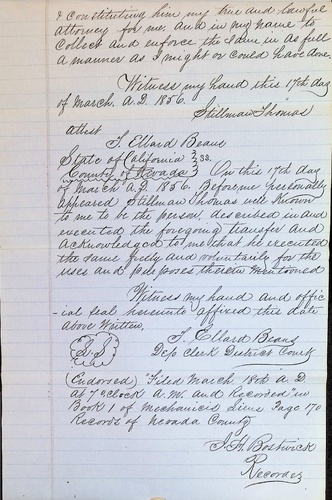 & constituting him my true and lawful
attorney for me, and in my name to
Collect and enforce the same in as full
a manner as I might or could have done.
Witness my hand this 17th day
of March. A.D. 1856.
Stillman Thomas
attest
T. Ellard Beans
State of California } ss.
County of Nevada } On this 17th day
of March A.D. 1856. Before me personally
appeared Stillman Thomas well Known
to me to be the person, described in and
executed the foregoing transfer and
acknowledged to me that he executed
the same freely and voluntarily for the
uses and purposes therein mentioned
Witness my hand and offic
-ial seal hereunto affixed this date
above Written,
T. Ellard Beans
(S.S) Dep Clerk District Court
(Endorsed) "Filed March 18th A.D.
at 7 o'clock A.M. and Recorded in
Book 1 of Mechanics Liens Page 170
Records of Nevada County
S. H. Bostwick
Recorder